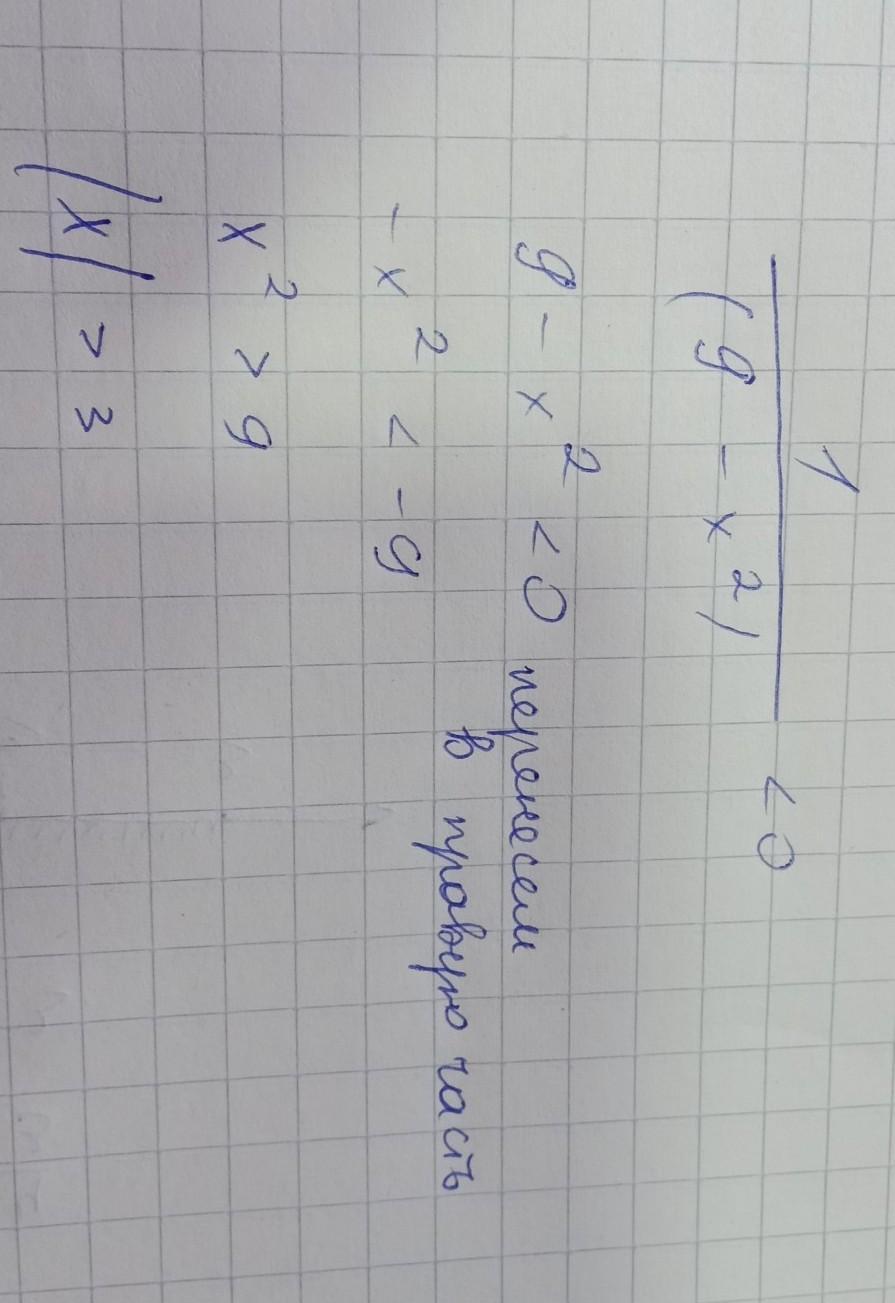 1
(9 - x²) < 0
9 - x² < 0 перенесем
в правую часть
- x² < - 9
x² > 9
|x| > 3